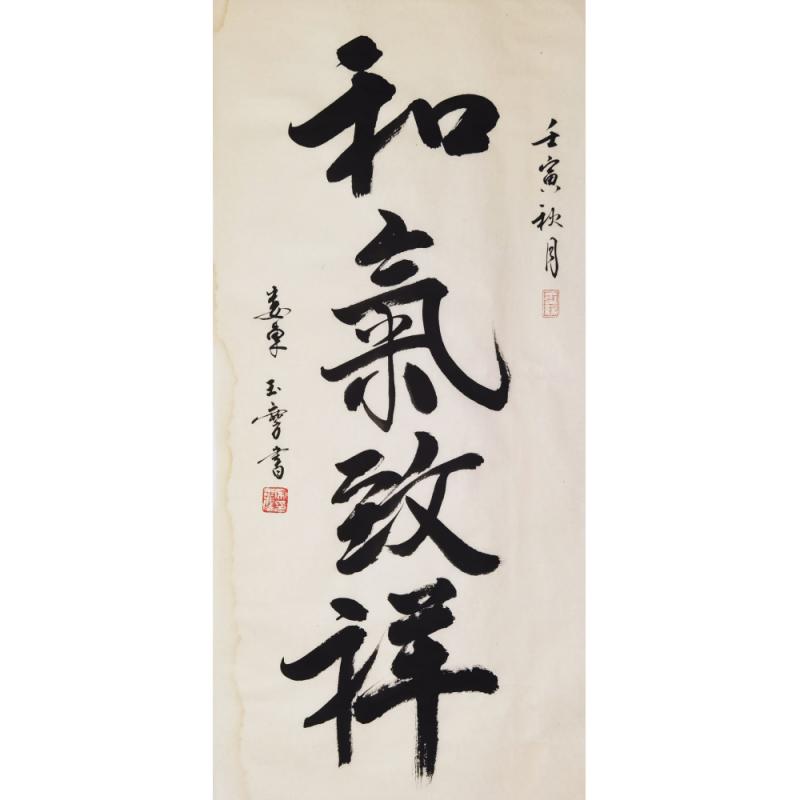 壬寅秋月
和氣致祥
婁東 玉書